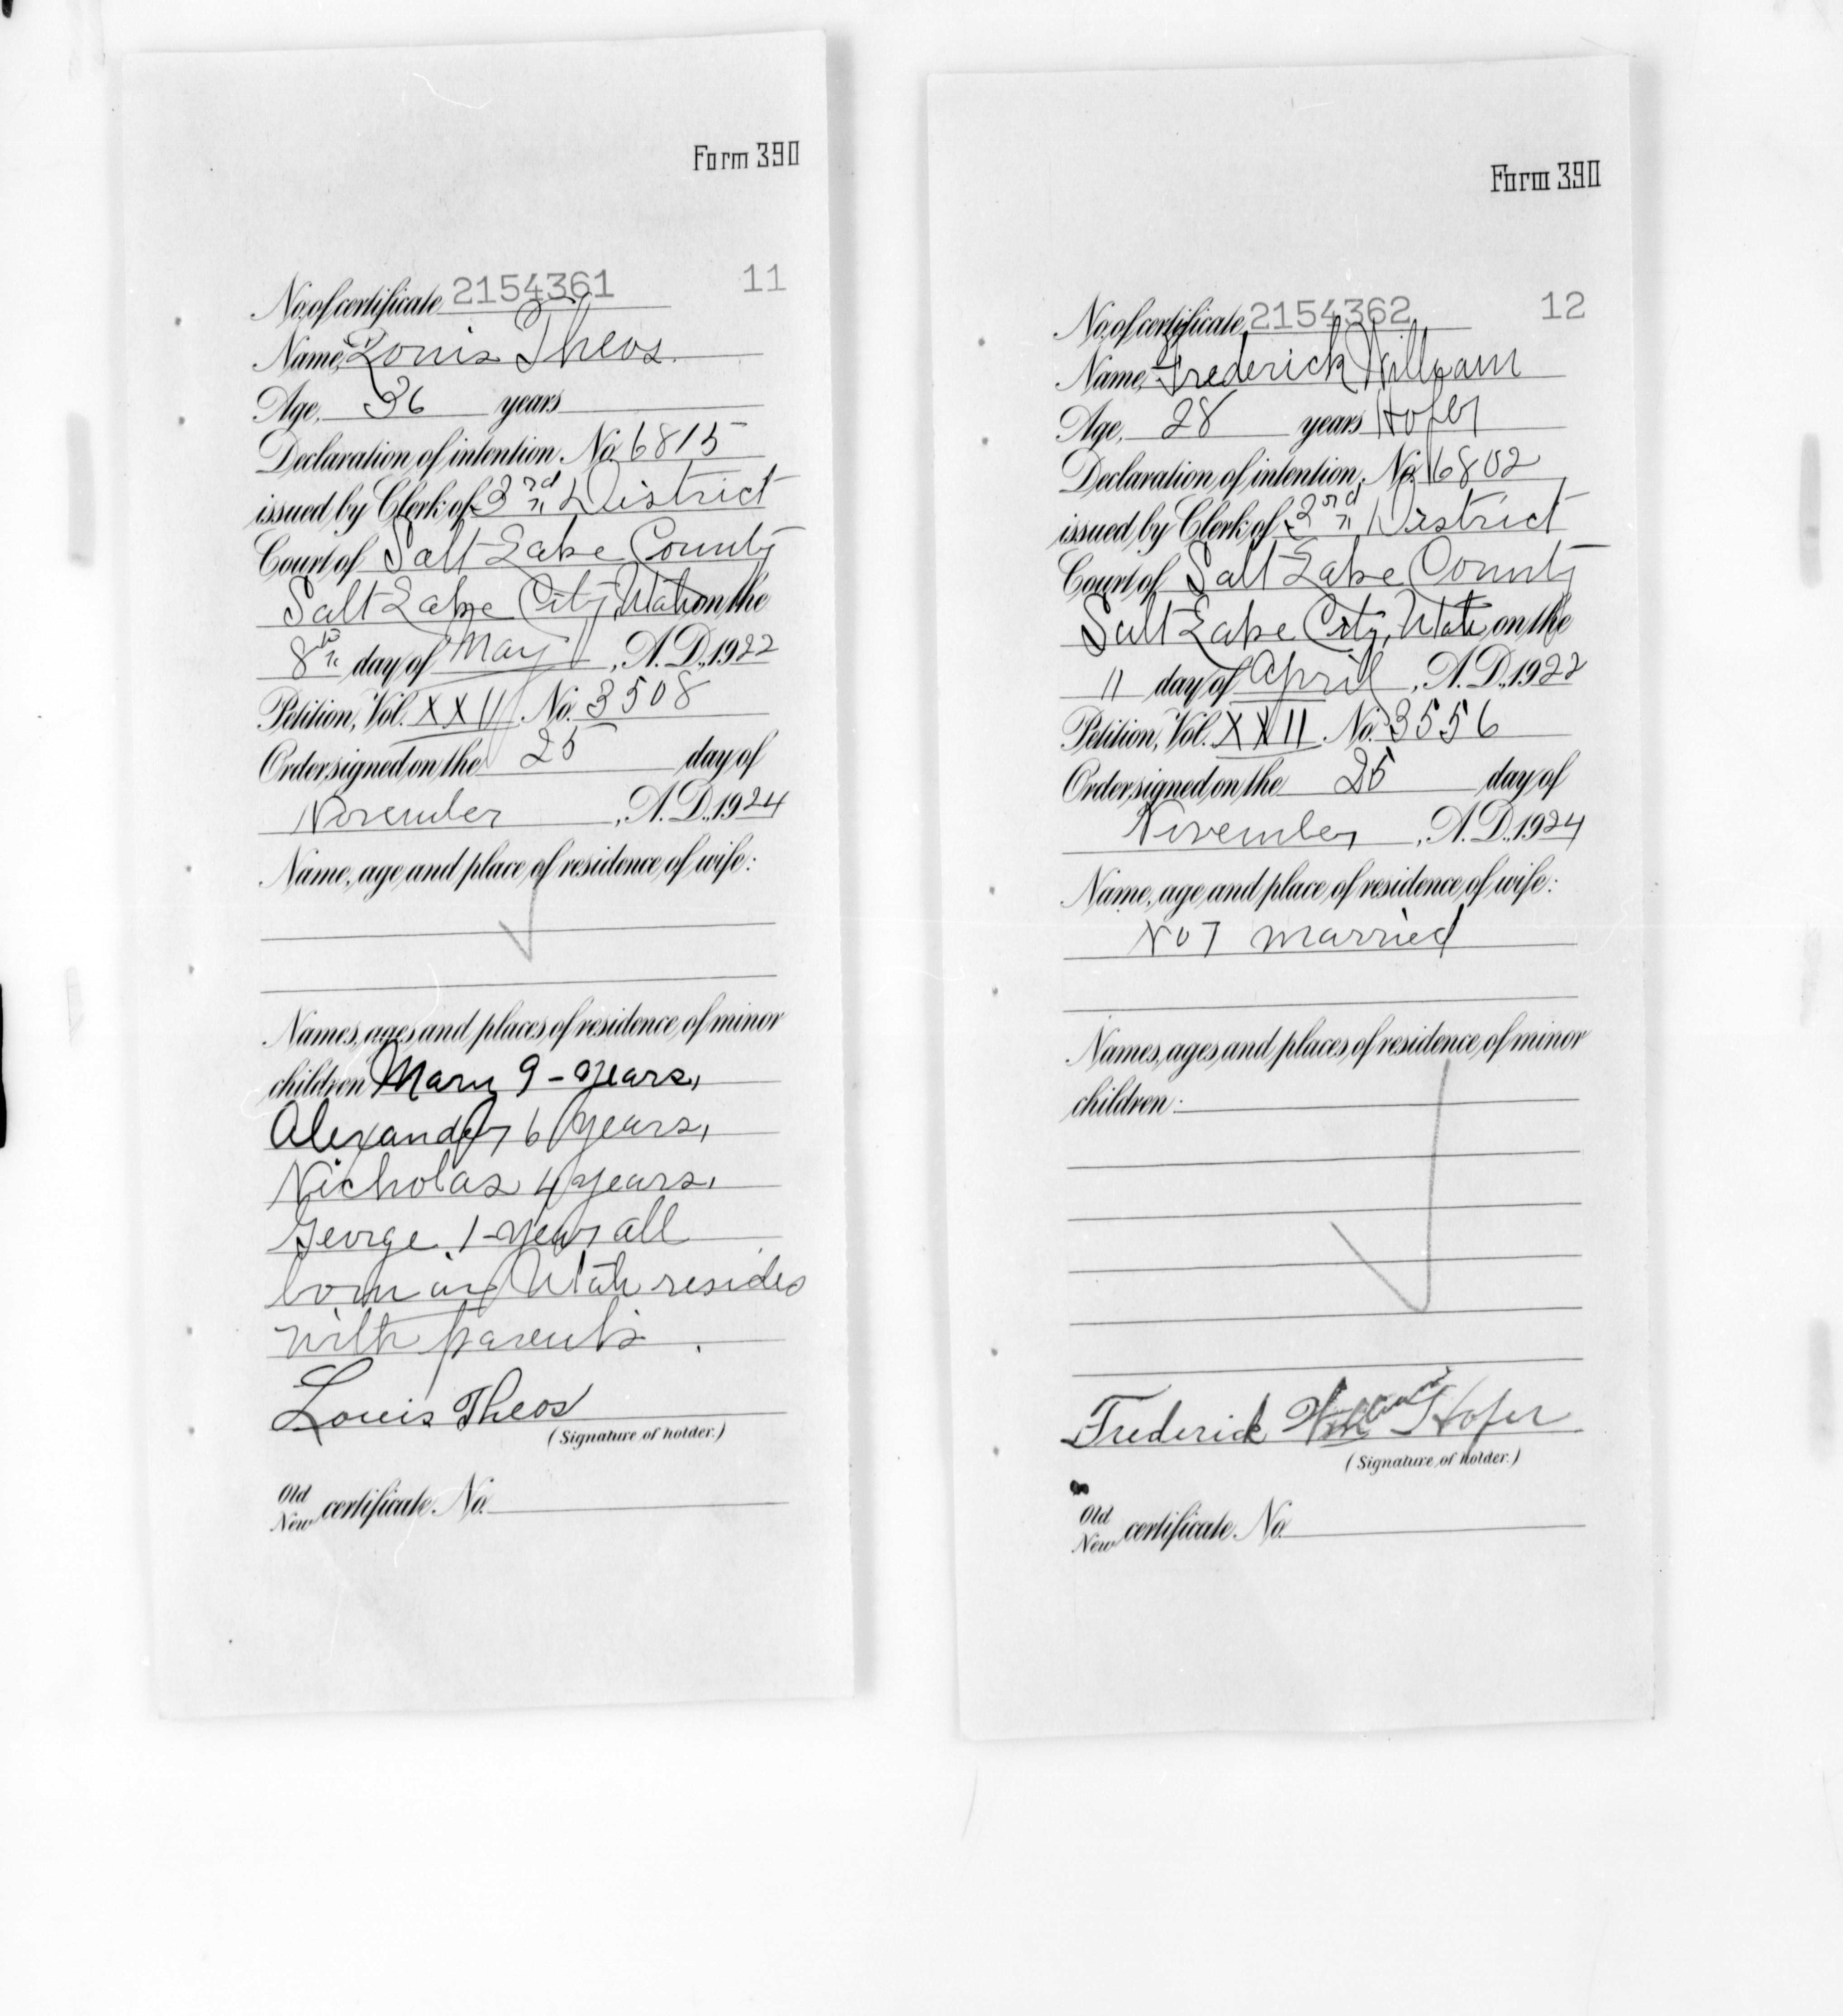 Form 390
No. of certificate 2154361 11
Name, Louis Theos.
Age, 36 years
Declaration of intention, No. 6815
issued by Clerk of 3rd District
Court of Salt Lake County
Salt Lake City, Utah on the
8th day of May, A. D., 1922
Petition, Vol. XXII No. 3508
Order signed on the 25 day of
November, A. D., 1924
Name, age and place of residence of wife:
Names, ages and places of residence of minor
children Mary 9 - years,
Alexander 6 years,
Nicholas 4 years,
George 1 - year all
born in Utah resides
with parents.
Louis Theos
(Signature of holder.)
Old
New certificate No.
Form 390
No. of certificate 2154362 12
Name, Frederick William
Age, 28 years Hofer
Declaration of intention, No. 6802
issued by Clerk of 3rd District
Court of Salt Lake County
Salt Lake City, Utah, on the
11 day of April, A. D., 1922
Petition, Vol. XXII No. 3556
Order signed on the 25 day of
November, A. D., 1924
Name, age and place of residence of wife:
Not married
Names, ages and places of residence of minor
children:
Frederick William Hofer
(Signature of holder.)
Old
New certificate No.